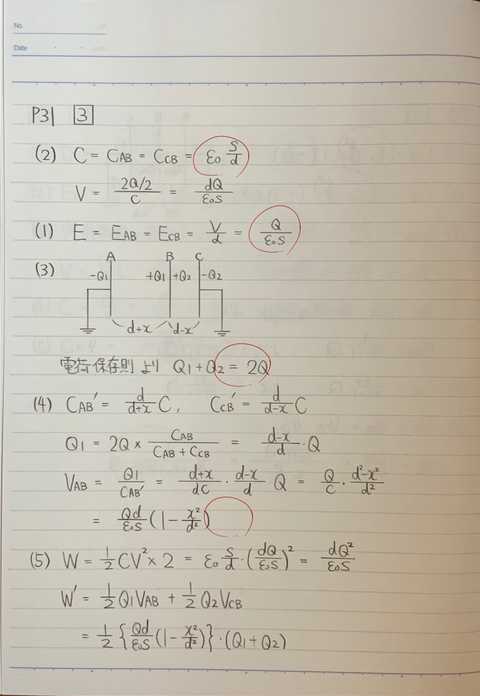 No.
Date
P31 3
(2) C = C_AB = C_CB = ε₀ S/d
V = (2Q/2)/C = dQ/ε₀S
(1) E = E_AB = E_CB = V/d = Q/ε₀S
(3)
A B C
-Q₁ +Q₁ +Q₂ -Q₂
d+x d-x
電荷保存則より Q₁+Q₂ = 2Q
(4) C_AB' = d/(d+x) C, C_CB' = d/(d-x) C
Q₁ = 2Q × C_AB/(C_AB + C_CB) = (d-x)/d · Q
V_AB = Q₁/C_AB' = (d+x)/dC · (d-x)/d Q = Q/C · (d²-x²)/d²
= Qd/ε₀S (1 - x²/d²)
(5) W = 1/2 CV² × 2 = ε₀ S/d · (dQ/ε₀S)² = dQ²/ε₀S
W' = 1/2 Q₁V_AB + 1/2 Q₂V_CB
= 1/2 {Qd/ε₀S (1 - x²/d²)} · (Q₁+Q₂)